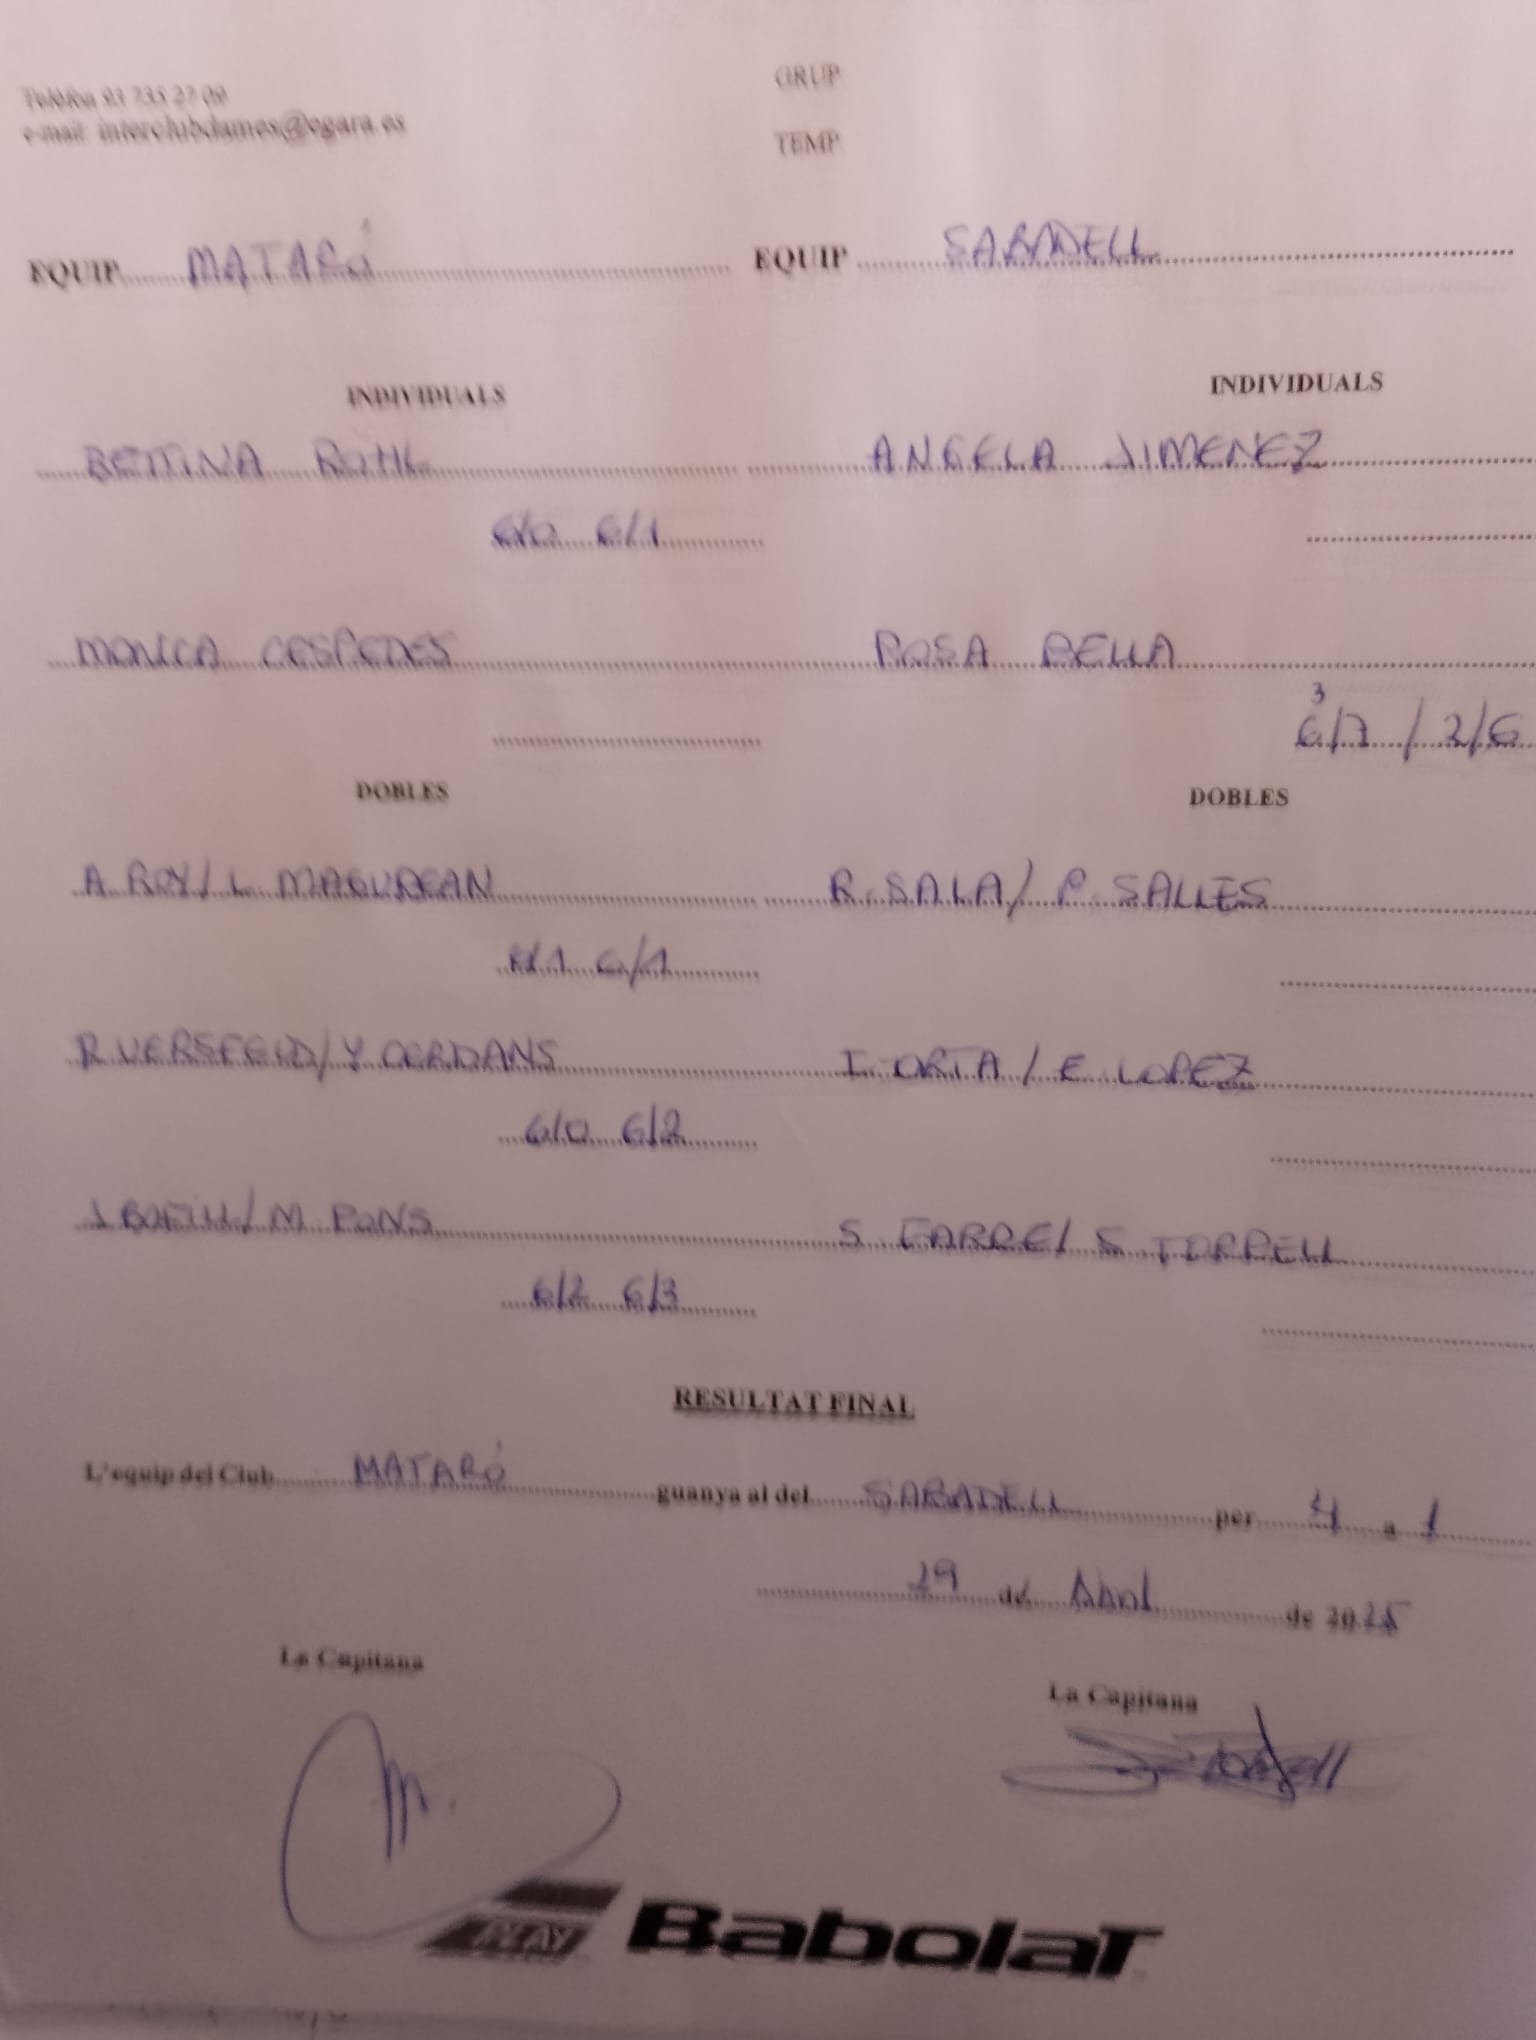 Telèfon 93 735 27 09
e-mail: interclubdames@egara.es
GRUP
TEMP
EQUIP MATARÓ EQUIP SABADELL
INDIVIDUALS INDIVIDUALS
BETTINA ROTHL ANGELA JIMENEZ
6/0 6/1
MONICA CESPEDES ROSA BELLA
3
6/7 / 2/6
DOBLES DOBLES
A ROY/L. MAGUREAN R. SALA/ P. SALLES
6/1
R VERSFELD/Y CERDANS I. ORTA / E. LOPEZ
6/0 6/2
J BOFILL/M PONS S. FARRE/ S TORRELL
6/2 6/3
RESULTAT FINAL
L'equip del Club MATARÓ guanya al del SABADELL per 4 a 1
29 de Abril de 2025
La Capitana
La Capitana
PLAY BABOLAT